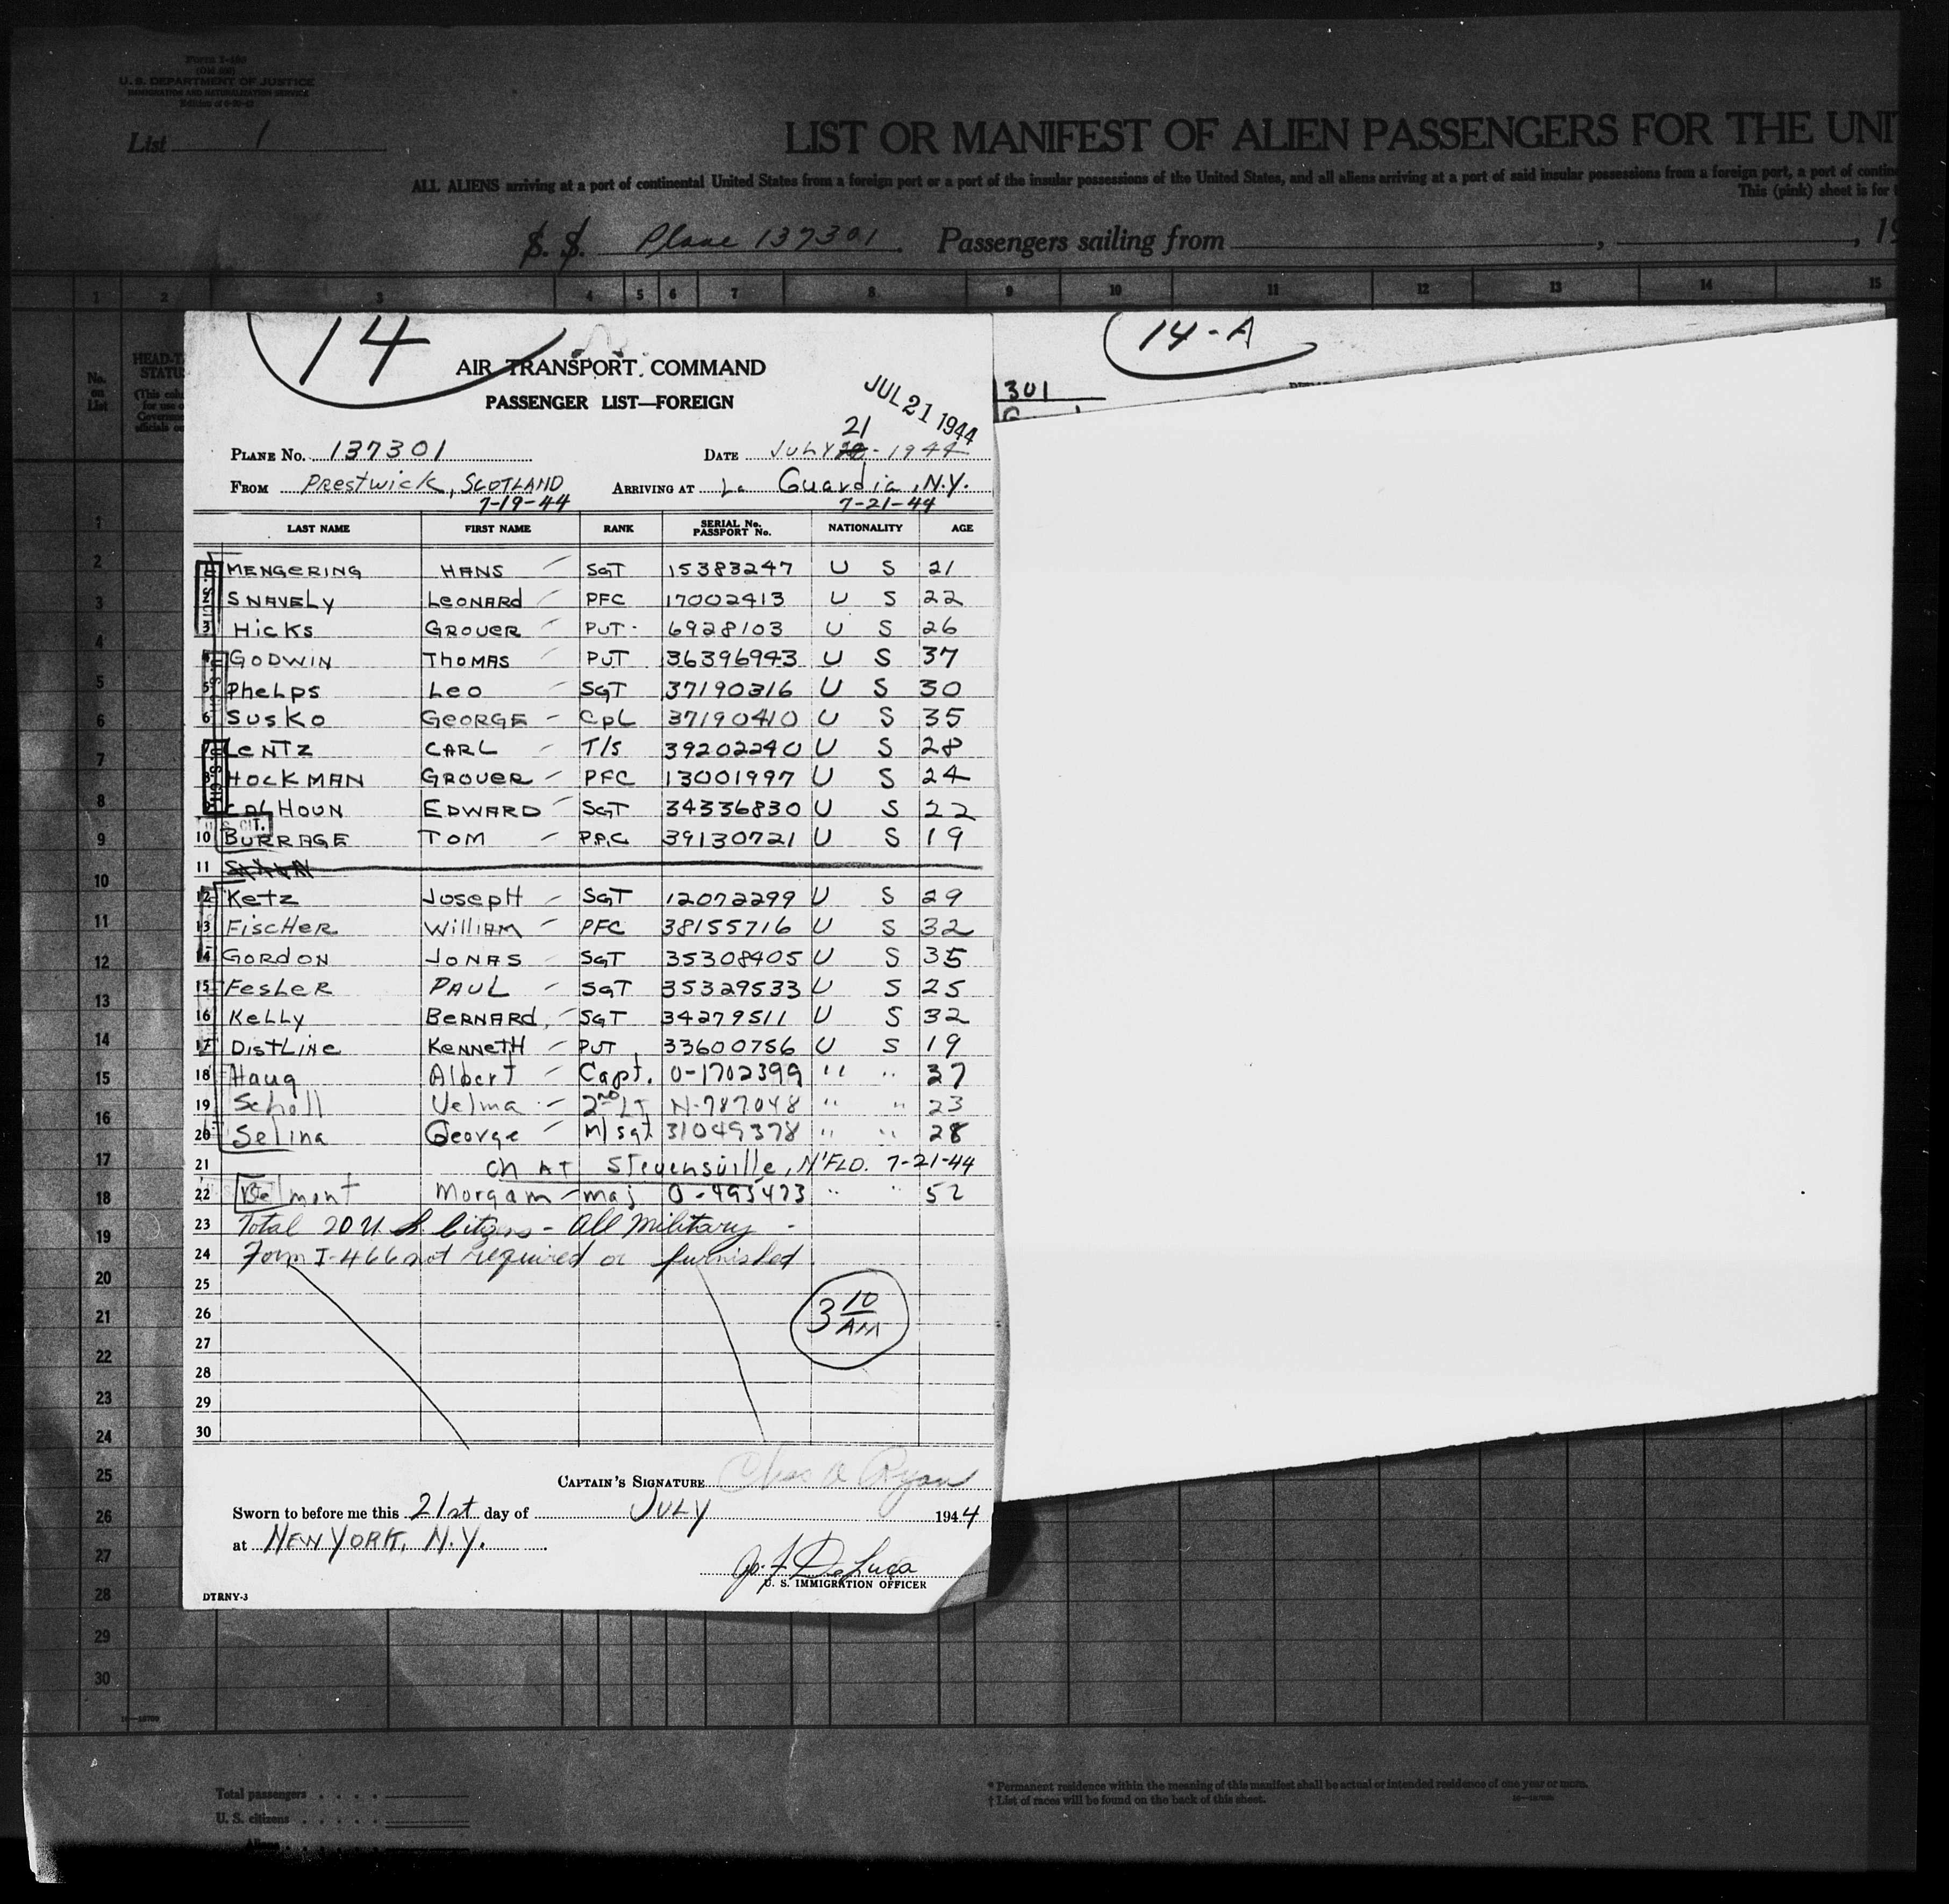 Form I-430
U. S. DEPARTMENT OF JUSTICE
IMMIGRATION AND NATURALIZATION SERVICE
List 1
LIST OR MANIFEST OF ALIEN PASSENGERS FOR THE UNI
ALL ALIENS arriving at a port of continental United States from a foreign port or a port of the insular possessions of the United States, and all aliens arriving at a port of said insular possessions from a foreign port, a port of contin
This (pink) sheet is for
S. S. Plane 137301 Passengers sailing from , , 19
1 2 3 4 5 6 7 8 9 10 11 12 13 14 15
No. on List
HEAD-T
STATU
14
14-A
301
AIR TRANSPORT COMMAND
PASSENGER LIST—FOREIGN
JUL 21 1944
21
PLANE NO. 137301 DATE JULY 20 - 1944
FROM Prestwick, SCOTLAND ARRIVING AT La Guardia, N.Y.
7-19-44 7-21-44
LAST NAME FIRST NAME RANK SERIAL No. PASSPORT No. NATIONALITY AGE
1 MENGERING HANS SGT 15383247 U S 21
2 SNAVELY LEONARD PFC 17002413 U S 22
3 HICKS GROVER PVT 6928103 U S 26
4 GODWIN THOMAS PVT 36396943 U S 37
5 PHELPS LEO SGT 37190316 U S 30
6 SUSKO GEORGE CPL 37190410 U S 35
7 LENTZ CARL T/5 39202240 U S 28
8 HOCKMAN GROVER PFC 13001997 U S 24
9 CALHOUN EDWARD SGT 34336830 U S 22
U.S. CIT.
10 BURRAGE TOM PFC 39130721 U S 19
11
12 KETZ JOSEPH SGT 12072299 U S 29
13 FISCHER WILLIAM PFC 38155716 U S 32
14 GORDON JONAS SGT 35308405 U S 35
15 FESLER PAUL SGT 35329533 U S 25
16 KELLY BERNARD SGT 34279511 U S 32
17 DISTLINE KENNETH PVT 33600756 U S 19
18 Haug Albert Capt. O-1702399 " " 37
19 Scholl Velma 2ND LT N-787048 " " 23
20 Selina George M/Sgt 31049378 " " 28
21 ON AT Stevensville, N'FLD. 7-21-44
22 Belmont Morgam maj O-495473 " " 52
23 Total 20 U.S. Citizens - All Military -
24 Form I-466 not required or furnished
25
26
27
28
29
30
3 10 AM
CAPTAIN'S SIGNATURE Chas A Ryan
Sworn to before me this 21st day of JULY 1944
at NEW YORK, N.Y.
Jos. F. DeLuca
U. S. IMMIGRATION OFFICER
DTRNY-3
1
2
3
4
5
6
7
8
9
10
11
12
13
14
15
16
17
18
19
20
21
22
23
24
25
26
27
28
29
30
Total passengers
U. S. citizens
Aliens
* Permanent residence within the meaning of this manifest shall be actual or intended residence of one year or more.
† List of races will be found on the back of this sheet.